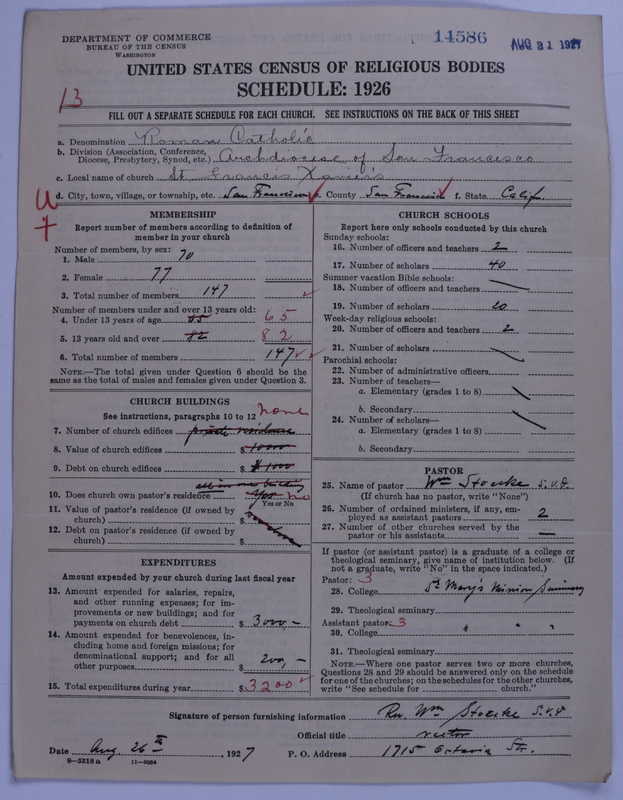 DEPARTMENT OF COMMERCE
BUREAU OF THE CENSUS
WASHINGTON
14586
AUG 31 1927
UNITED STATES CENSUS OF RELIGIOUS BODIES
SCHEDULE: 1926
13
FILL OUT A SEPARATE SCHEDULE FOR EACH CHURCH. SEE INSTRUCTIONS ON THE BACK OF THIS SHEET
a. Denomination Roman Catholic
b. Division (Association, Conference,
Diocese, Presbytery, Synod, etc.) Archdiocese of San Francisco
c. Local name of church St. Francis Xavier's
d. City, town, village, or township, etc. San Francisco e. County San Francisco f. State Calif.
MEMBERSHIP
Report number of members according to definition of
member in your church
Number of members, by sex:
1. Male 70
2. Female 77
3. Total number of members 147
Number of members under and over 13 years old:
4. Under 13 years of age 65
5. 13 years old and over 82 82
6. Total number of members 147
NOTE.—The total given under Question 6 should be
the same as the total of males and females given under Question 3.
CHURCH BUILDINGS
See instructions, paragraphs 10 to 12 none
7. Number of church edifices private residence
8. Value of church edifices $ 10000
9. Debt on church edifices $ 1000
all in one building
10. Does church own pastor's residence yes no
Yes or No
11. Value of pastor's residence (if owned by
church) $
12. Debt on pastor's residence (if owned by
church) $
EXPENDITURES
Amount expended by your church during last fiscal year
13. Amount expended for salaries, repairs,
and other running expenses; for im-
provements or new buildings; and for
payments on church debt $ 3000,—
14. Amount expended for benevolences, in-
cluding home and foreign missions; for
denominational support; and for all
other purposes 200,—
15. Total expenditures during year $ 3200
CHURCH SCHOOLS
Report here only schools conducted by this church
Sunday schools:
16. Number of officers and teachers 2
17. Number of scholars 40
Summer vacation Bible schools:
18. Number of officers and teachers
19. Number of scholars 20
Week-day religious schools:
20. Number of officers and teachers 2
21. Number of scholars
Parochial schools:
22. Number of administrative officers
23. Number of teachers—
a. Elementary (grades 1 to 8)
b. Secondary
24. Number of scholars—
a. Elementary (grades 1 to 8)
b. Secondary
PASTOR
25. Name of pastor Wm Stoecke S.V.D.
(If church has no pastor, write "None")
26. Number of ordained ministers, if any, em-
ployed as assistant pastors 2
27. Number of other churches served by the
pastor or his assistants —
If pastor (or assistant pastor) is a graduate of a college or
theological seminary, give name of institution below. (If
not a graduate, write "No" in the space indicated.)
Pastor: 3
28. College St Mary's Mission Seminary
29. Theological seminary
Assistant pastor: 3
30. College " " "
31. Theological seminary
NOTE.—Where one pastor serves two or more churches,
Questions 28 and 29 should be answered only on the schedule
for one of the churches; on the schedules for the other churches,
write "See schedule for church."
Signature of person furnishing information Rev. Wm Stoecke S.V.D
Official title rector
Date Aug. 26th, 1927 P. O. Address 1715 Octavia Str.
8—5518a 11—9054